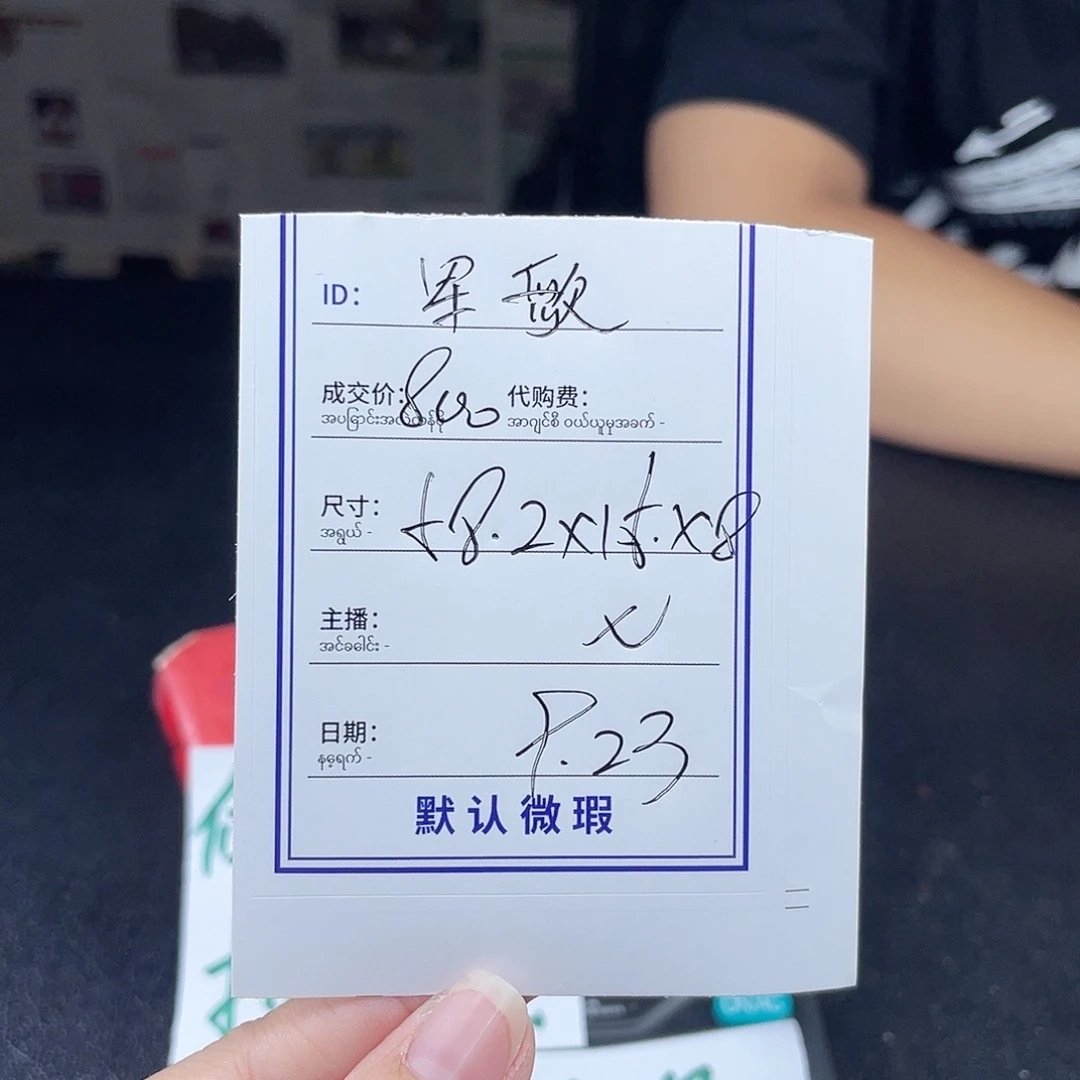 ID：
成交价：800 代购费：
အပြောင်းအလဲတန်ဖိုး အာဂျင်စီ ဝယ်ယူမှုအခက် -
尺寸：58.2x15.x8
အရွယ် -
主播：
အင်ခေါင်း -
日期：8.23
နေ့ရက် -
默认微瑕